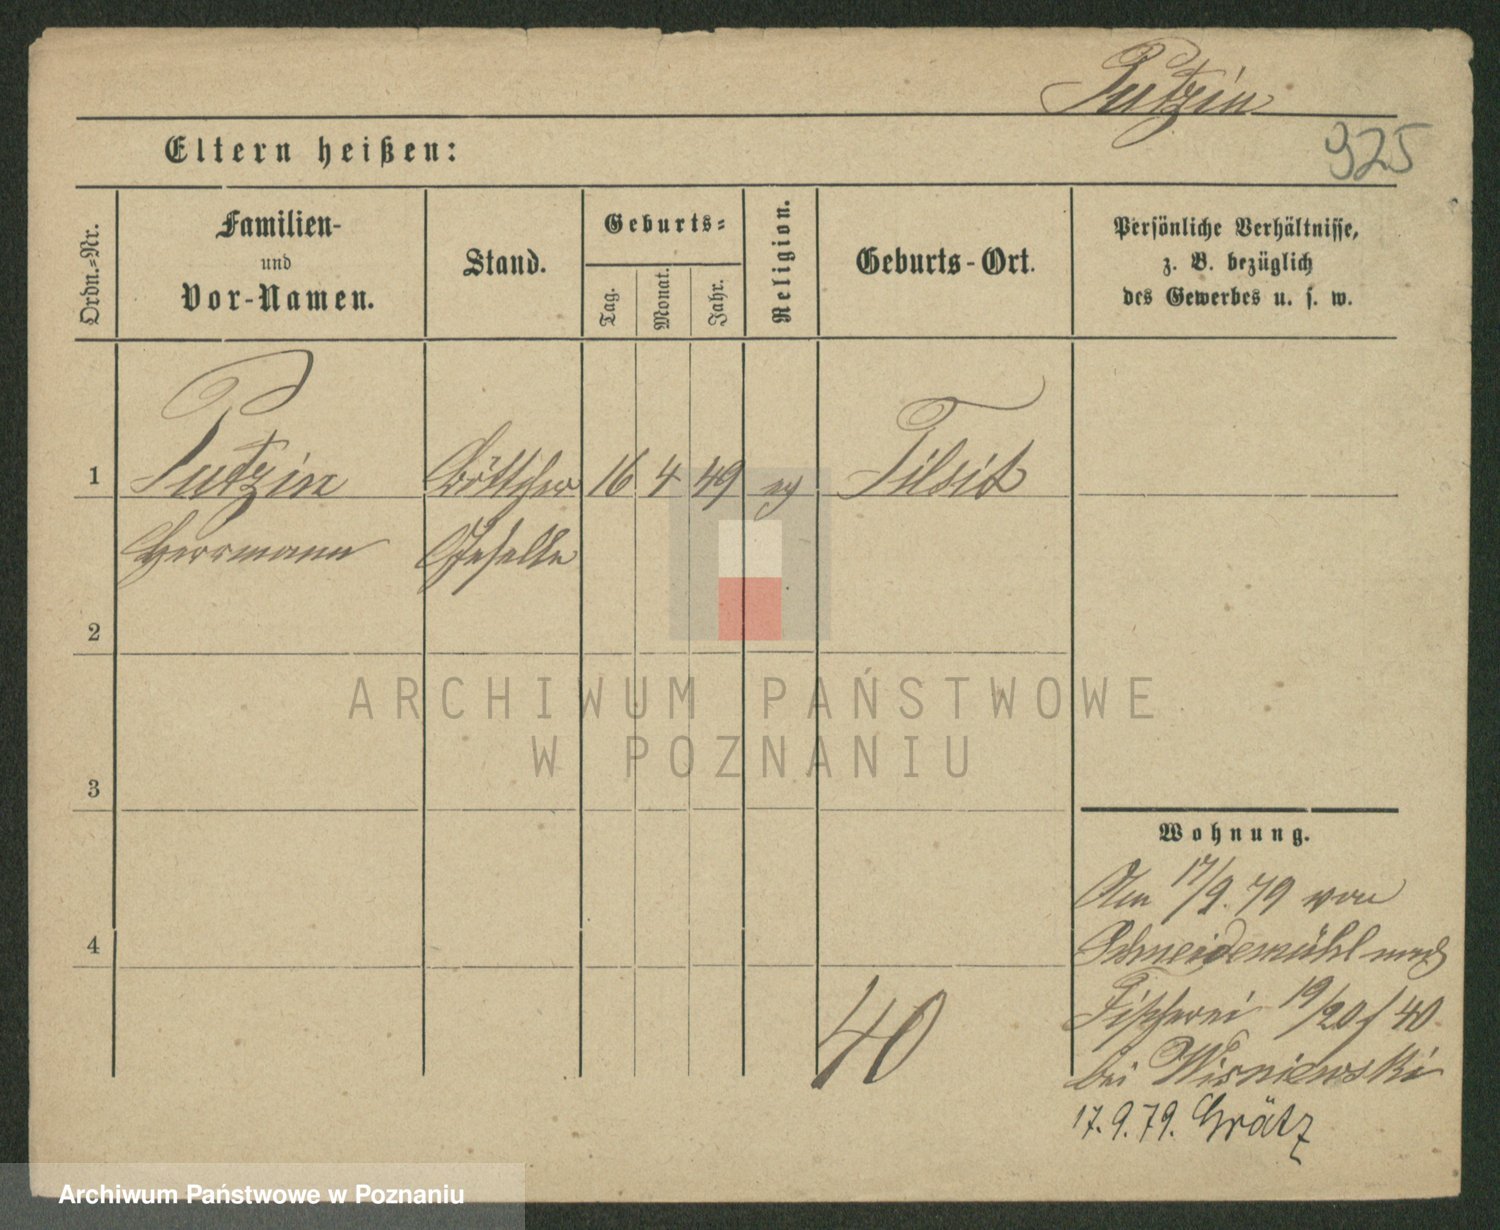 Putzin
925
Eltern heißen:
Ordn.-Nr.
Familien-
und
Vor-Namen.
Stand.
Geburts-
Tag.
Monat.
Jahr.
Religion.
Geburts-Ort.
Persönliche Verhältnisse,
z. B. bezüglich
des Gewerbes u. s. w.
1 Putzin Böttcher 16 4 49 ev Tilsit
Herrmann Geselle
2
3
4
Wohnung.
Am 17/9. 79 von
Schneidemühl nach
Fischerei 19/20 / 40
bei Wisniewski
17. 9. 79. Grätz
40
ARCHIWUM PAŃSTWOWE
W POZNANIU
Archiwum Państwowe w Poznaniu